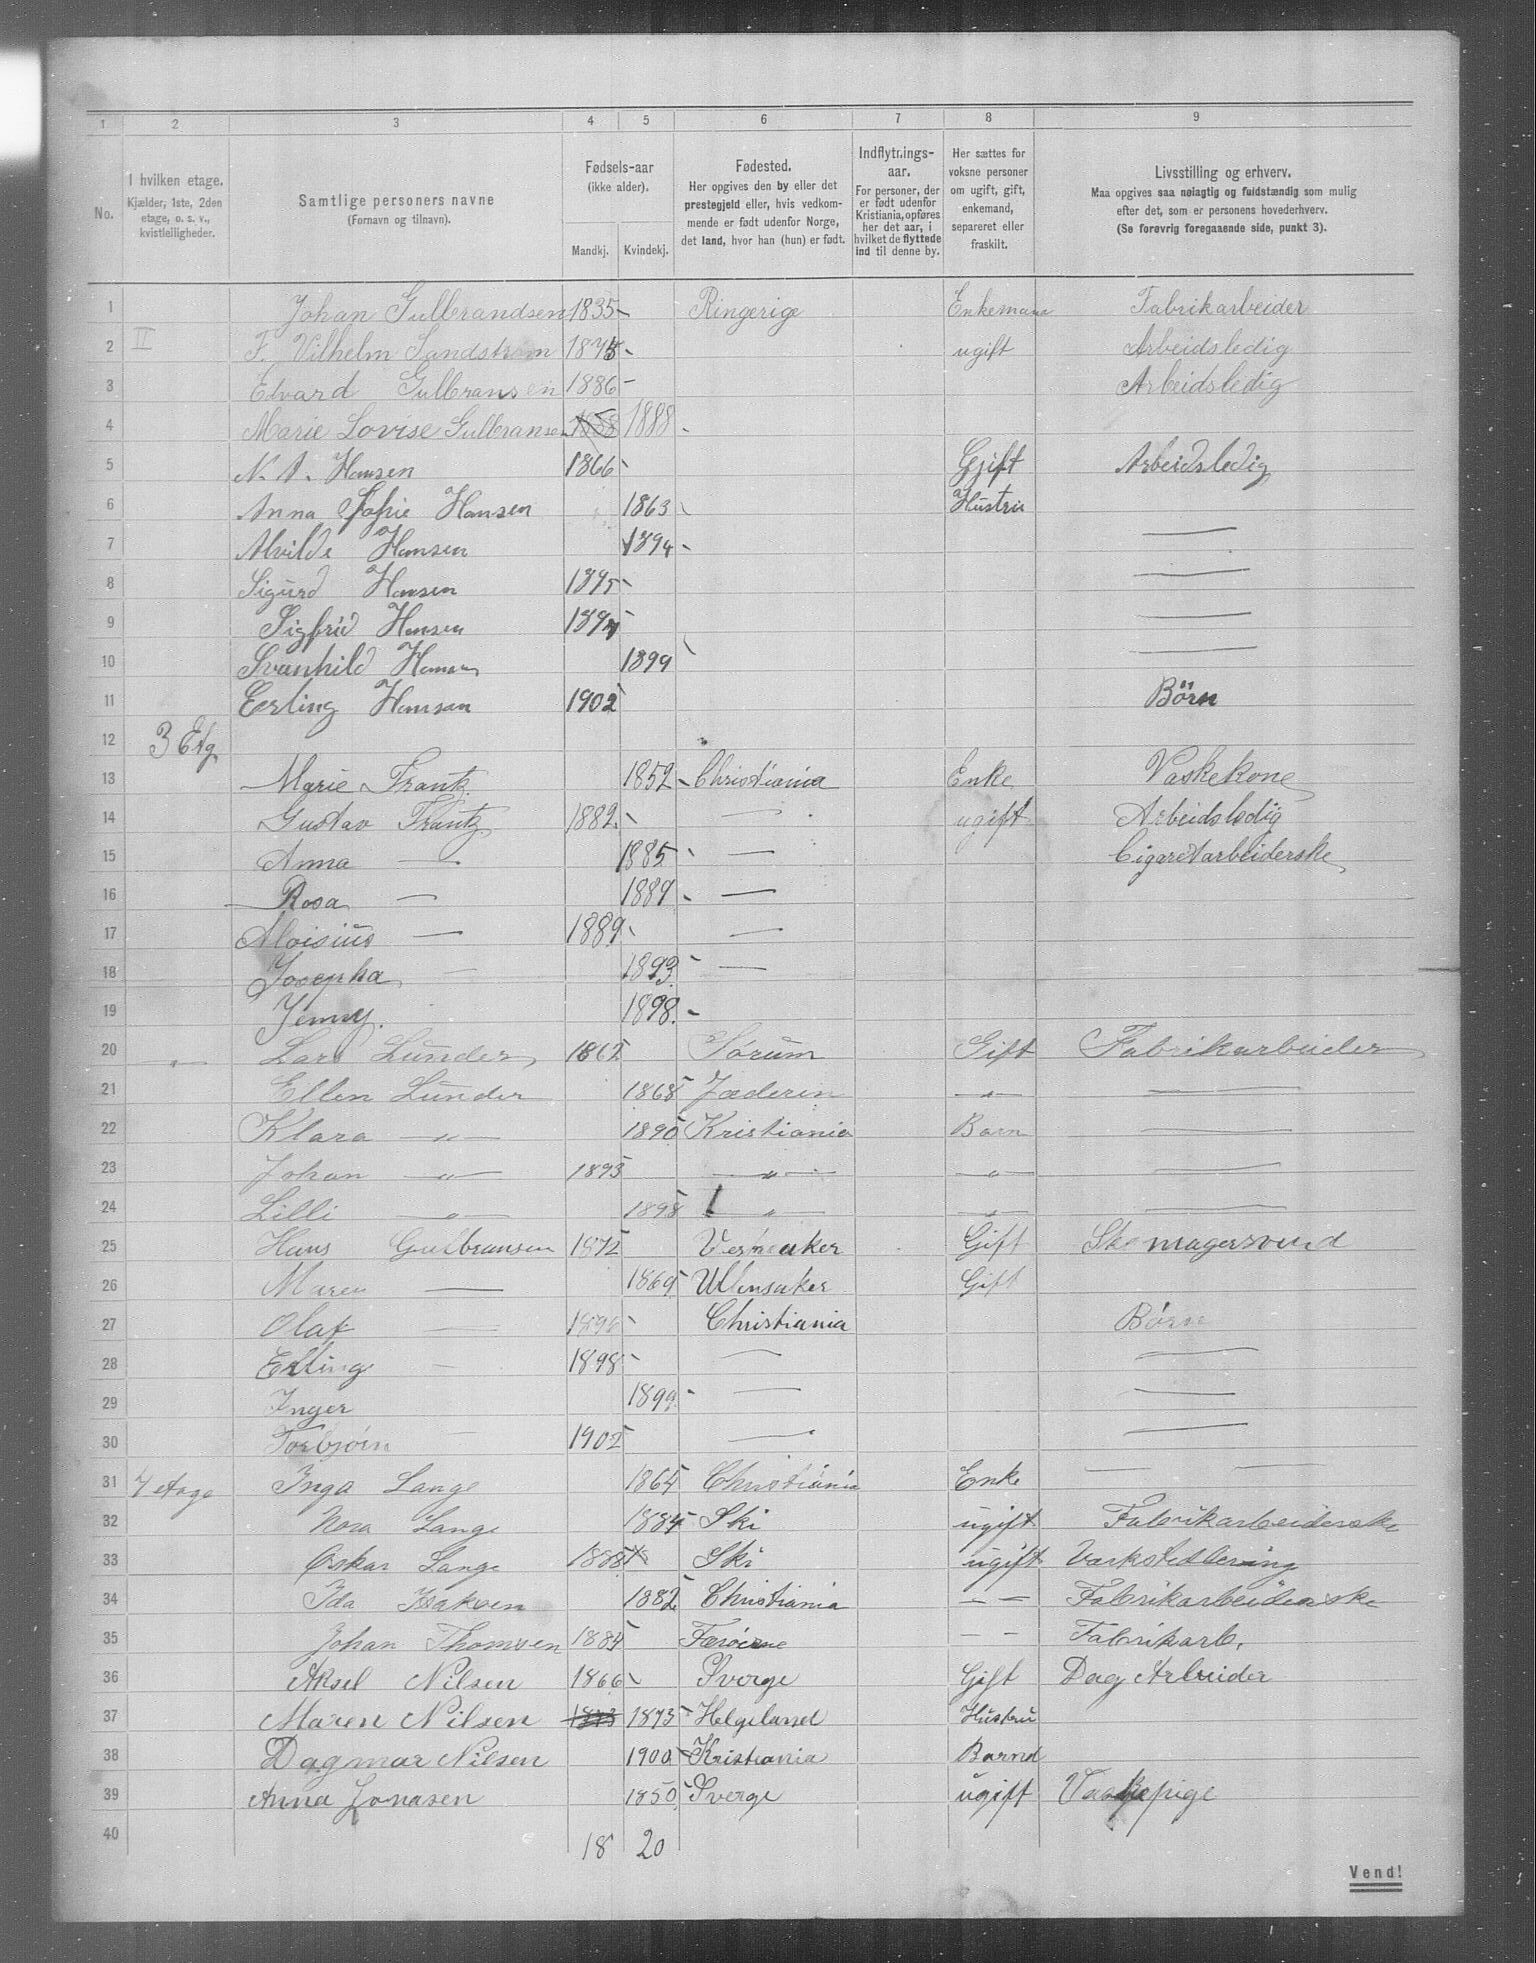 1 2 3 4 5 6 7 8 9
No. I hvilken etage. Kjælder, 1ste, 2den etage, o. s. v., kvistleiligheder. Samtlige personers navne (Fornavn og tilnavn). Fødsels-aar (ikke alder). Mandkj. Kvindekj. Fødested. Her opgives den by eller det prestegjeld eller, hvis vedkommende er født udenfor Norge, det land, hvor han (hun) er født. Indflytnings-aar. For personer, der er født udenfor Kristiania, opføres her det aar, i hvilket de flyttede ind til denne by. Her sættes for voksne personer om ugift, gift, enkemand, separeret eller fraskilt. Livsstilling og erhverv. Maa opgives saa nøiagtig og fuldstændig som mulig efter det, som er personens hovederhverv. (Se forøvrig foregaaende side, punkt 3).
1 Johan Gulbrandsen 1835 - Ringerige Enkemann Fabrikarbeider
2 II F. Vilhelm Sandstrøm - ugift Arbeidsledig
3 Edvard Gulbransen 1886 - Arbeidsledig
4 Marie Lovise Gulbransen 1888 -
5 N. A. Hansen 1866 - Gift Arbeidsledig
6 Anna Sofie Hansen 1863 Hustru
7 Alvilde Hansen 1894 - —
8 Sigurd Hansen 1895 - —
9 Sigfrid Hansen - —
10 Svanhild Hansen 1899 —
11 Erling Hansen 1902 Börn
12 3 Etg
13 Marie Frantz 1852 - Christiania Enke Vaskekone
14 Gustav Frantz 1882 - — ugift Arbeidsledig
15 Anna — 1885 - — Cigaretarbeiderske
16 Rosa — 1889 - —
17 Aloisius — 1889 - —
18 Josepha — 1893 - —
19 Jenny 1898. -
20 — " — Lars Lunder 1862 Sørum Gift Fabrikarbeider
21 Ellen Lunder 1868 Jæderen — " — —
22 Klara — " — 1890 Kristiania Barn —
23 Johan — " — 1893 — " — — " — —
24 Lilli — " — 1898 — " — — " — —
25 Hans Gulbransen 1872 Gift Skomagersvend
26 Maren — 1869 Ullensaker Gift
27 Olaf — 1896 - Christiania Børn
28 Erling — 1898 - — —
29 Inger 1899 - — —
30 Torbjørn — 1902 — —
31 4 etage Inga Lange 1864 Christiania Enke — —
32 Nora Lange 1884 Ski ugift Fabrikarbeiderske
33 Oskar Lange 1888 Ski ugift
34 Ida Isaksen 1882 Christiania — — Fabrikarbeiderske
35 Johan Thomsen 1884 Færøerne — — Fabrikarb.
36 Aksel Nilsen 1866 - Sverge Gift Dag Arbeider
37 Maren Nilsen 1873 1873 - Helgeland Hustru
38 Dagmar Nilsen 1900 - Kristiania Barnd
39 Anna Jonasen 1850 - Sverge ugift Vaskepige
40 18 20
Vend!